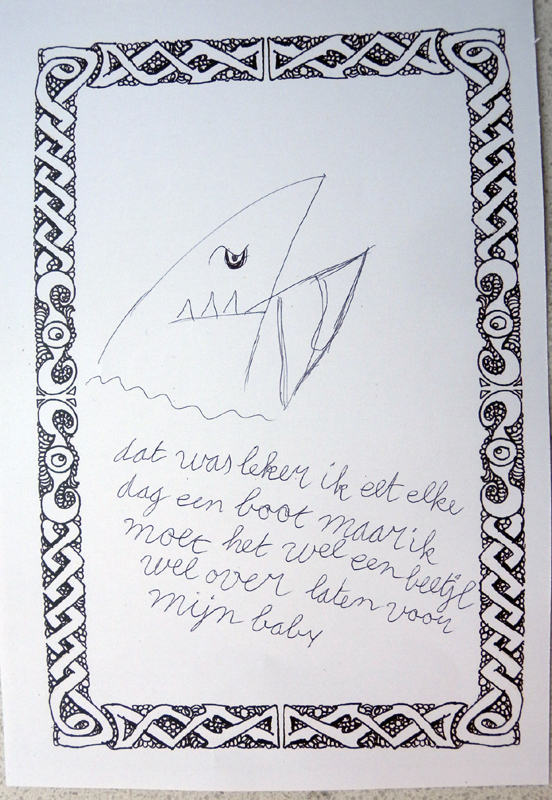 dat was leker ik eet elke
dag een boot maar ik
moet het wel een beetjl
wel over laten voor
mijn baby